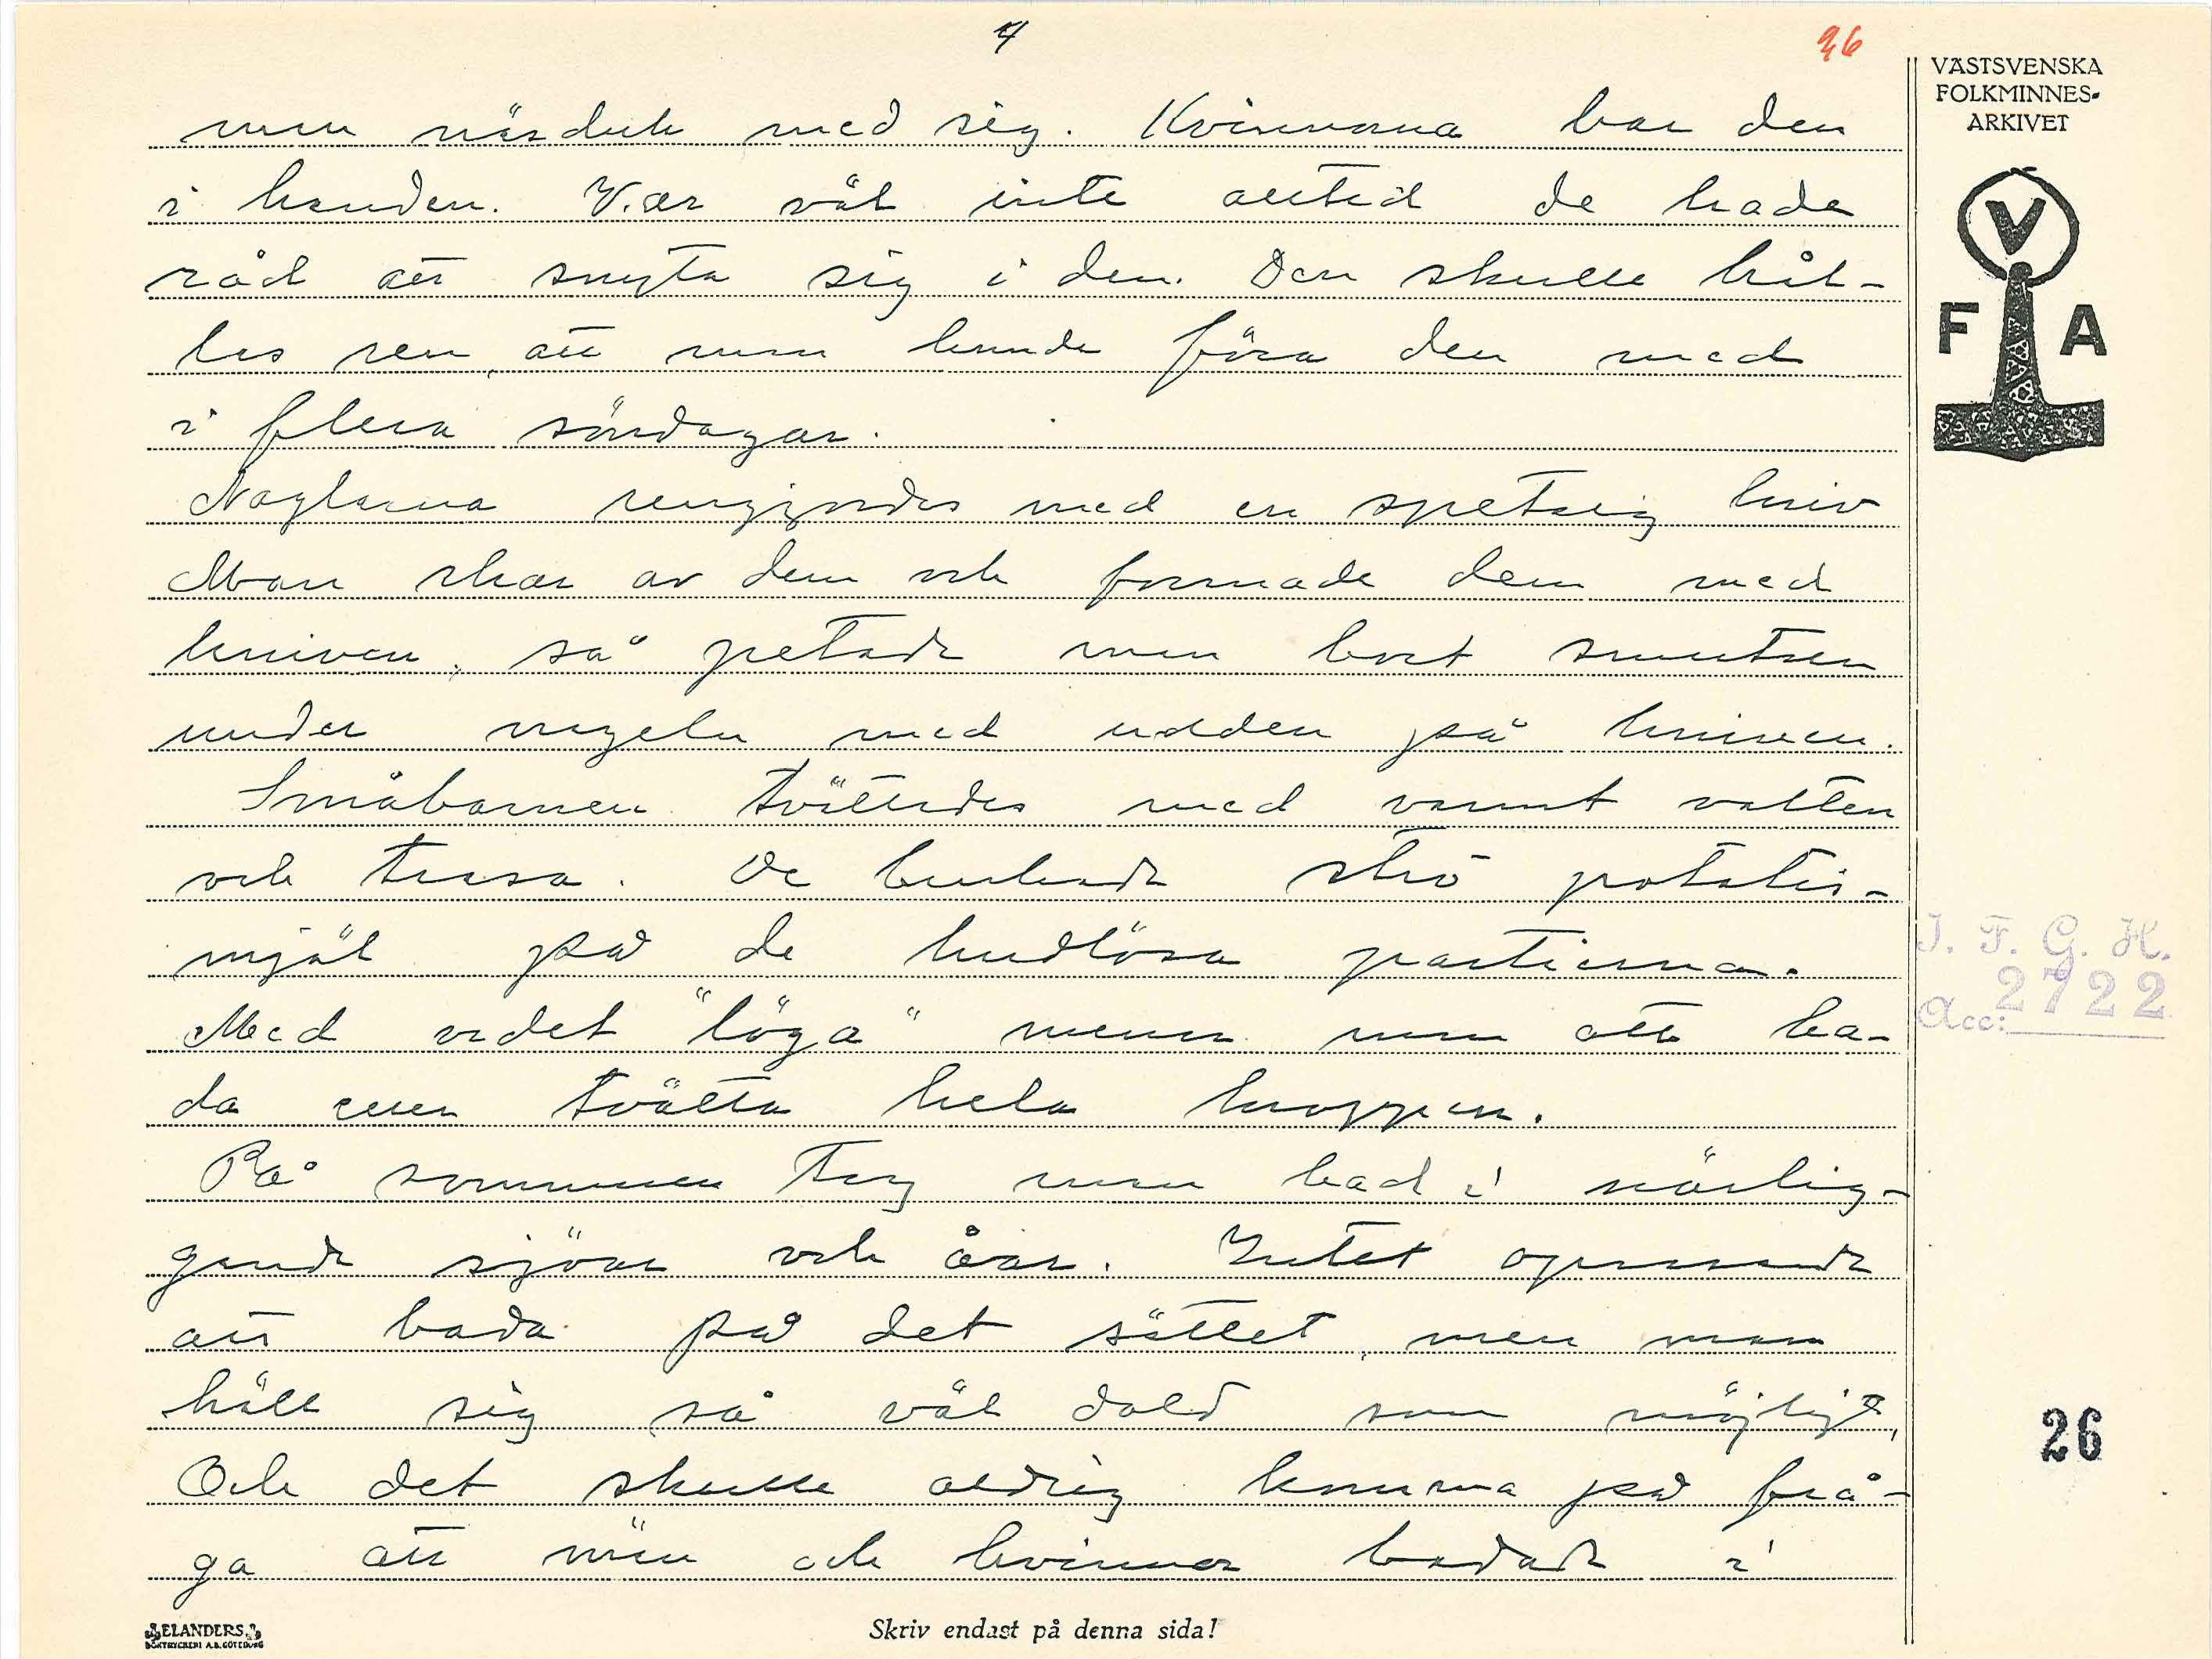 4
26
VÄSTSVENSKA
FOLKMINNES-
ARKIVET
V
F A
man näsduk med sig. Kvinnorna bar den
i handen. Var väl inte alltid de hade
råd att snyta sig i den. Den skulle hål-
las ren, att man kunde föra den med
i flera söndagar.
Naglarna rengjordes med en spetsig kniv
Man skar av dem och formade dem med
kniven, så petade man bort smutsen
under nageln med udden på kniven.
Småbarnen tvättades med varmt vatten
och trasa. De brukade strö potatis-
mjöl på de hudlösa partierna.
Med ordet "löga" menar man att ba-
da eller tvätta hela kroppen.
På sommaren tog man bad i närlig-
gande sjöar och åar. Intet opassande
att bada på det sättet, men man
höll sig så väl dold som möjligt,
Och det skulle aldrig komma på frå-
ga att män och kvinnor badade i
J. F. G. H.
Acc: 2722
26
ELANDERS
BOKTRYCKERI A.B. GÖTEBORG
Skriv endast på denna sida!